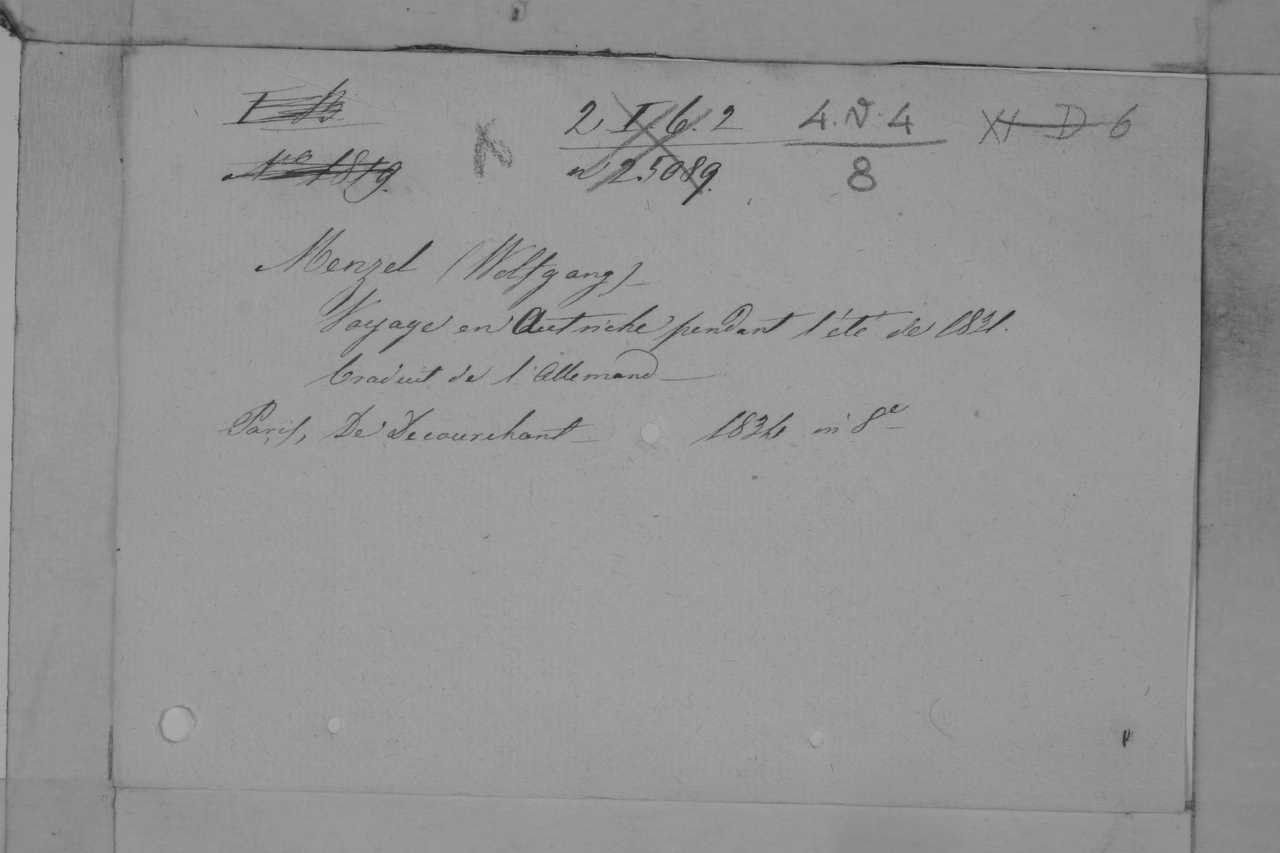 2 I. 6. 2
4. V. 4
XI D 6
Nro 1819.
n 25089.
8
Menzel (Wolfgang)
Voyage en Autriche pendant l'été de 1831.
traduit de l'Allemand
Paris, De Decourchant 1834 in 8e